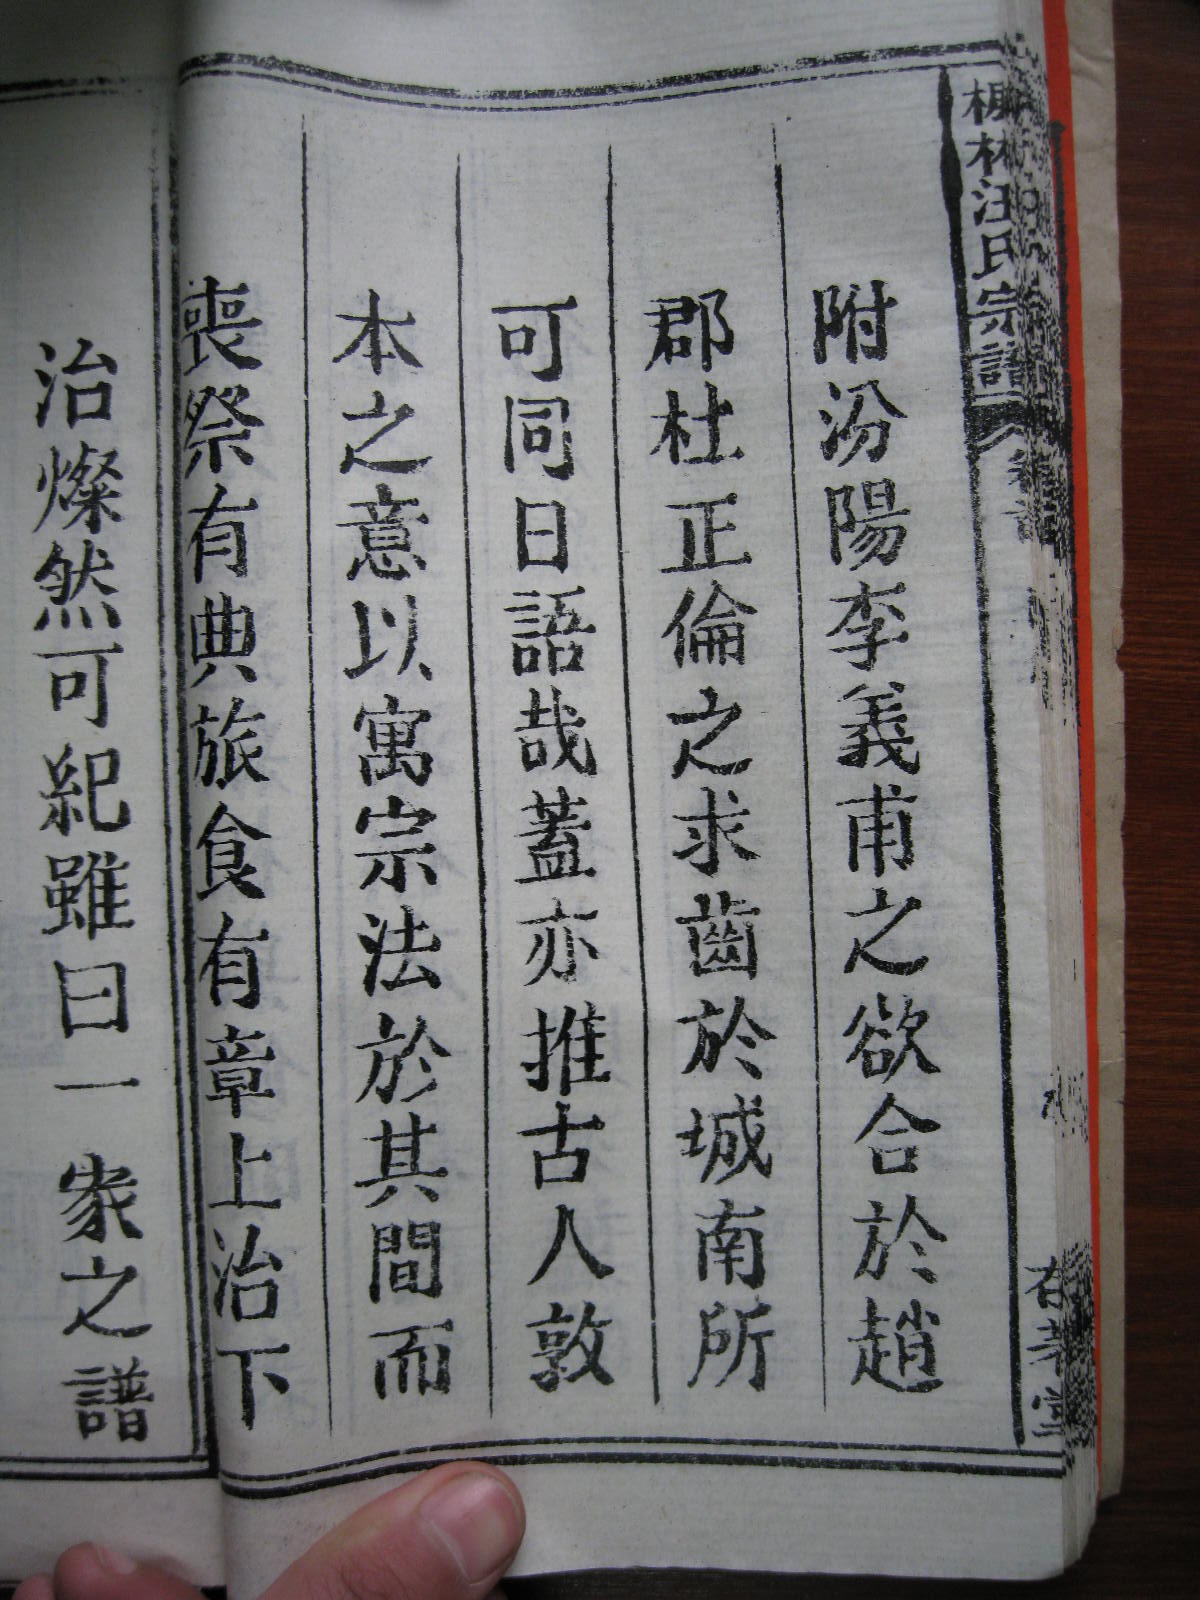 林汪氏宗譜
附汾陽李義甫之欲合於趙
郡杜正倫之求齒於城南所
可同日語哉蓋亦推古人敦
本之意以寓宗法於其間而
喪祭有典旅食有章上治下
治燦然可紀雖曰一家之譜